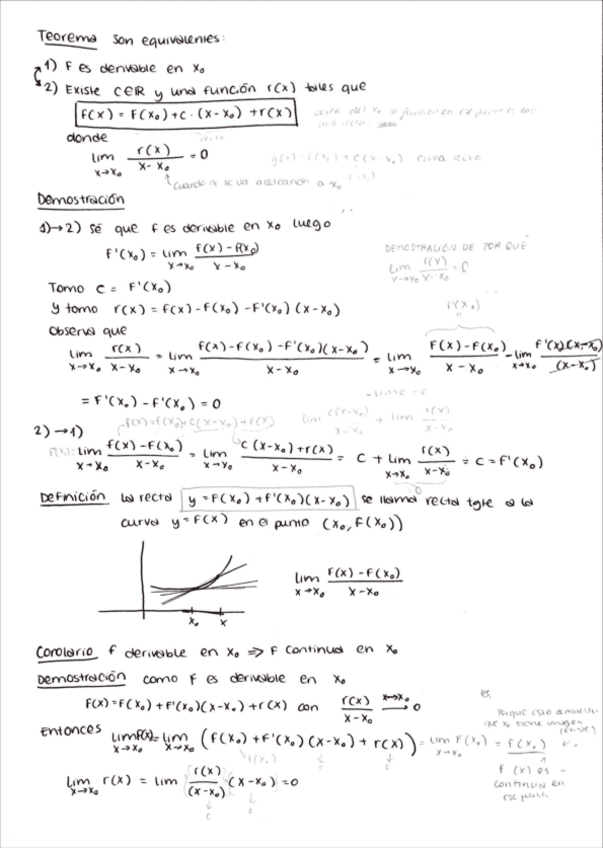 Teorema son equivalentes:
1) F es derivable en x₀
2) Existe C∈ℝ y una función r(x) tales que
F(x) = F(x₀) + c·(x-x₀) + r(x)
donde
lim x→x₀ r(x)/(x-x₀) = 0
cuando x se va acercando a x₀
Demostración
1)→2) Sé que f es derivable en x₀ luego
F'(x₀) = lim x→x₀ (f(x) - f(x₀))/(x-x₀)
DEMOSTRACIÓN DE POR QUÉ
lim x→x₀ r(x)/(x-x₀) = 0
Tomo c = F'(x₀)
y tomo r(x) = f(x) - F(x₀) - F'(x₀)(x-x₀)
f'(x₀)
Observa que
lim x→x₀ r(x)/(x-x₀) = lim x→x₀ (f(x) - F(x₀) - F'(x₀)(x-x₀))/(x-x₀) = lim x→x₀ (F(x) - F(x₀))/(x-x₀) - lim x→x₀ f'(x₀)(x-x₀)/(x-x₀)
= F'(x₀) - F'(x₀) = 0
lim c(x-x₀)/(x-x₀) + lim r(x)/(x-x₀)
2)→1)
lim x→x₀ (f(x) - F(x₀))/(x-x₀) = lim x→x₀ (c(x-x₀) + r(x))/(x-x₀) = c + lim x→x₀ r(x)/(x-x₀) = c = f'(x₀)
0
Definición La recta y = F(x₀) + f'(x₀)(x-x₀) se llama recta tgte a la
curva y = F(x) en el punto (x₀, F(x₀))
lim x→x₀ (F(x) - F(x₀))/(x-x₀)
x₀ x
Corolario f derivable en x₀ ⇒ F continua en x₀
Demostración como F es derivable en x₀
F(x) = F(x₀) + F'(x₀)(x-x₀) + r(x) con r(x)/(x-x₀) x→x₀ → 0
Entonces lim x→x₀ F(x) = lim x→x₀ (F(x₀) + F'(x₀)(x-x₀) + r(x)) = lim x→x₀ F(x) = f(x₀)
f(x) es
continua en
ese punto
lim x→x₀ r(x) = lim r(x)/(x-x₀) (x-x₀) = 0